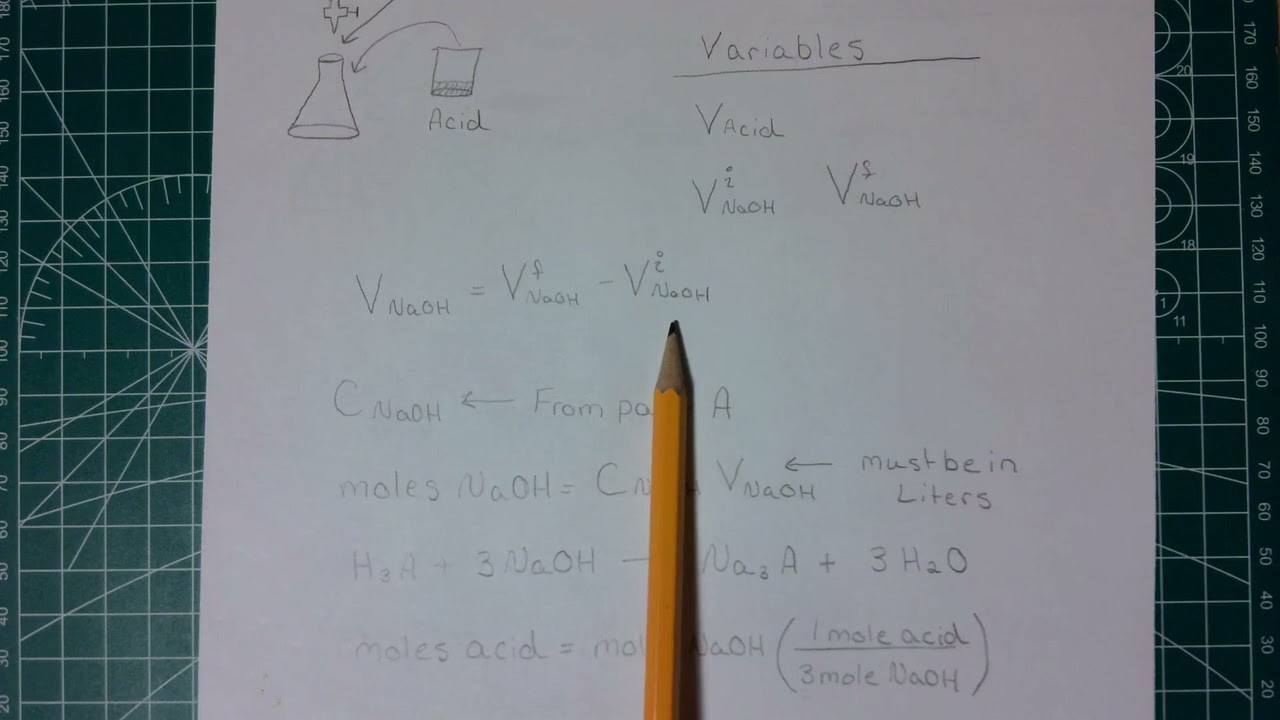 Variables
Acid
V Acid
V^i_NaOH V^f_NaOH
V_NaOH = V^f_NaOH - V^i_NaOH
C_NaOH ← From A
moles NaOH = V_NaOH ← must be in
Liters
H₃A + 3NaOH Na₃A + 3H₂O
moles acid = NaOH (1 mole acid / 3 mole NaOH)
180
170
160
150
140
130
120
110
100
90
80
70
60
50
40
30
20
170
160
150
140
130
120
110
100
90
80
70
60
50
40
30
20
20
19
18
1
11